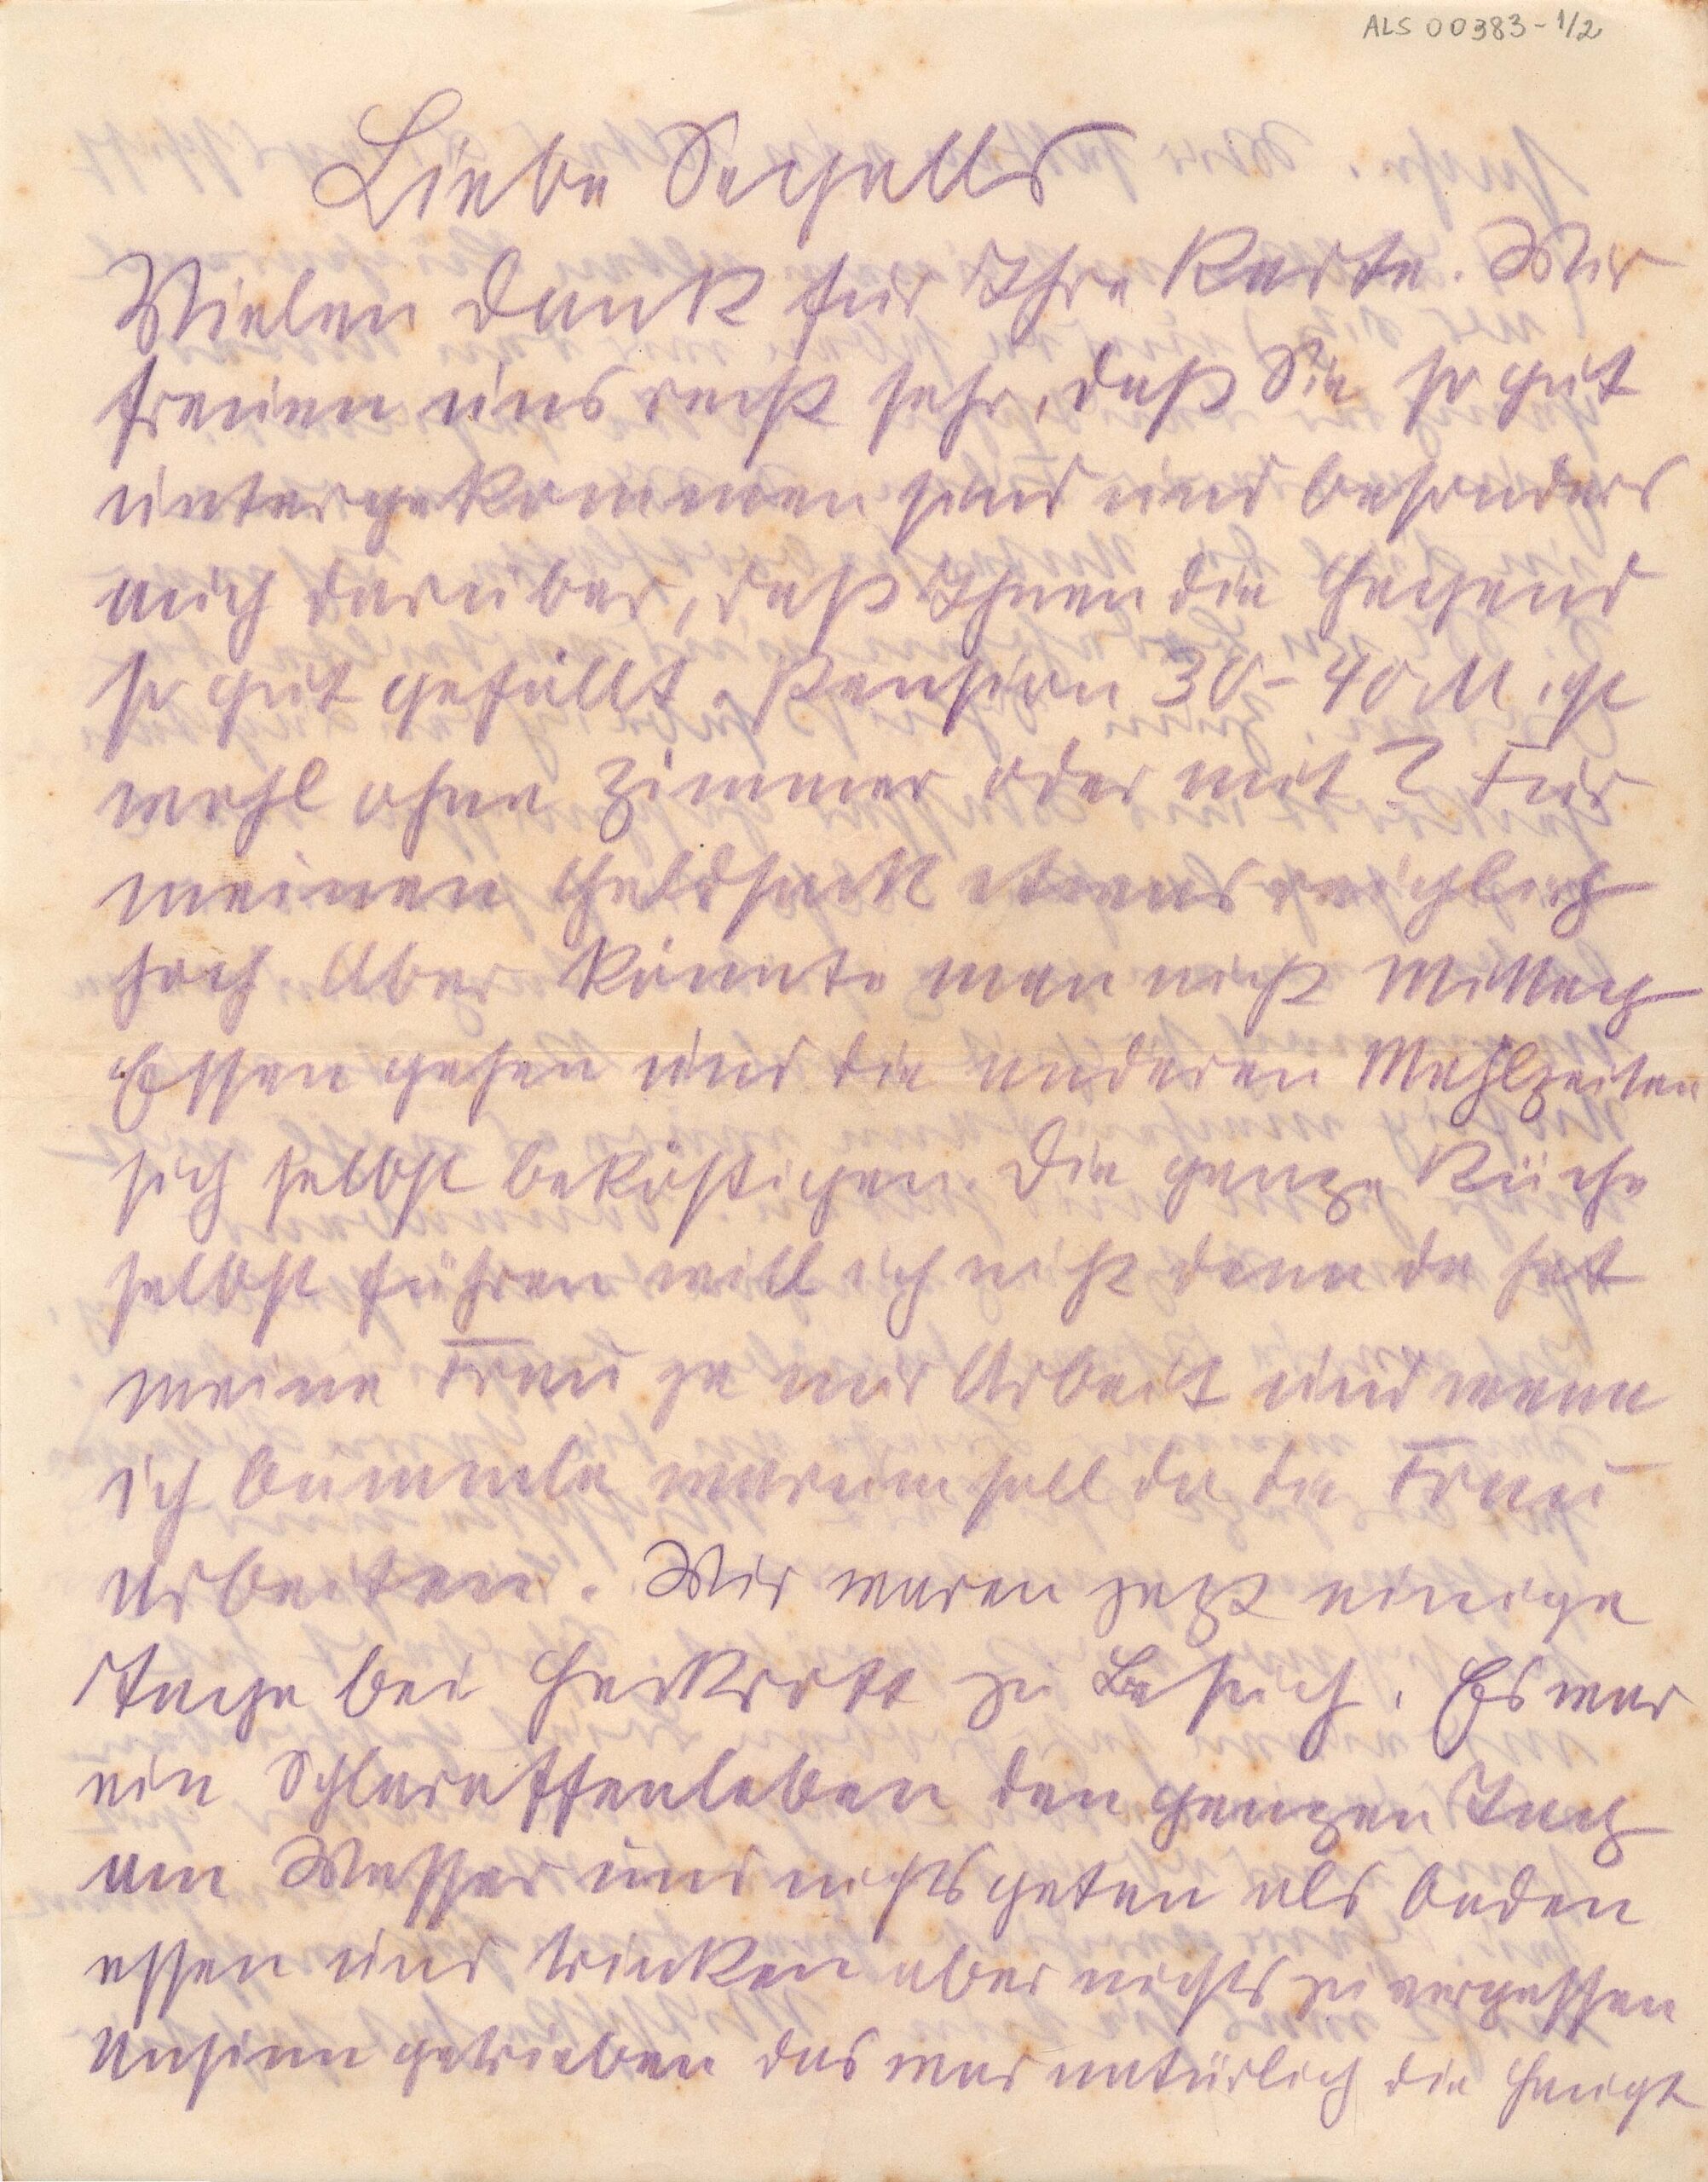 ALS 00383-1/2
Liebe Segalls
Vielen Dank für Ihre Karte. Wir
freuen uns recht sehr, daß Sie so gut
untergekommen sind und besonders
auch darüber, daß Ihnen die Gegend
so gut gefällt. Pension 30-40 M ist
wohl ohne Zimmer oder mit? Für
meinen Geldsack etwas reichlich
hoch. Aber könnte man nicht Mittag
Essen gehen und die anderen Mahlzeiten
sich selbst beköstigen. Die ganze Küche
selbst führen will ich nicht denn da hat
meine Frau ja nur Arbeit und wenn
ich bummle warum soll da die Frau
arbeiten. Wir waren jetzt einige
Tage bei Heckrott zu Besuch. Es war
ein Schlaraffenleben den ganzen Tag
am Wasser und nichts getan als baden
essen und trinken aber nichts zu vergessen
Unsinn getrieben das war natürlich die Haupt